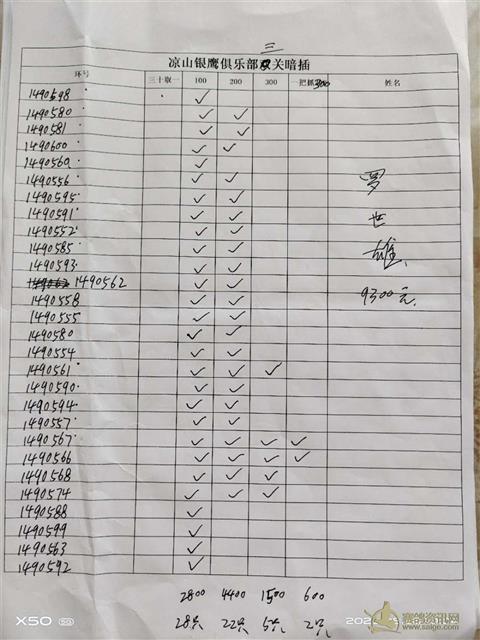 凉山银鹰俱乐部三关暗插
环号 三十取一 100 200 300 一把抓300 姓名
1490598 ✓
1490580 ✓ ✓
1490581 ✓ ✓
1490600 ✓ ✓
1490560 ✓
1490556 ✓ ✓
1490595 ✓ ✓
1490591 ✓ ✓
1490552 ✓ ✓
1490585 ✓ ✓
1490593 ✓ ✓
1490562 ✓ ✓
1490558 ✓ ✓
1490555 ✓ ✓
1490580 ✓ ✓
1490554 ✓ ✓
1490561 ✓ ✓ ✓
1490590 ✓ ✓
1490594 ✓ ✓
1490557 ✓ ✓
1490567 ✓ ✓ ✓ ✓
1490566 ✓ ✓ ✓ ✓
1490568 ✓ ✓ ✓
1490574 ✓ ✓ ✓
1490588 ✓
1490599 ✓
1490563 ✓
1490592 ✓
罗
世
雄
9300元
2800 4400 1500 600
28只 22只 5只 2只
X50 5G
赛鸽资讯网
www.saige.com